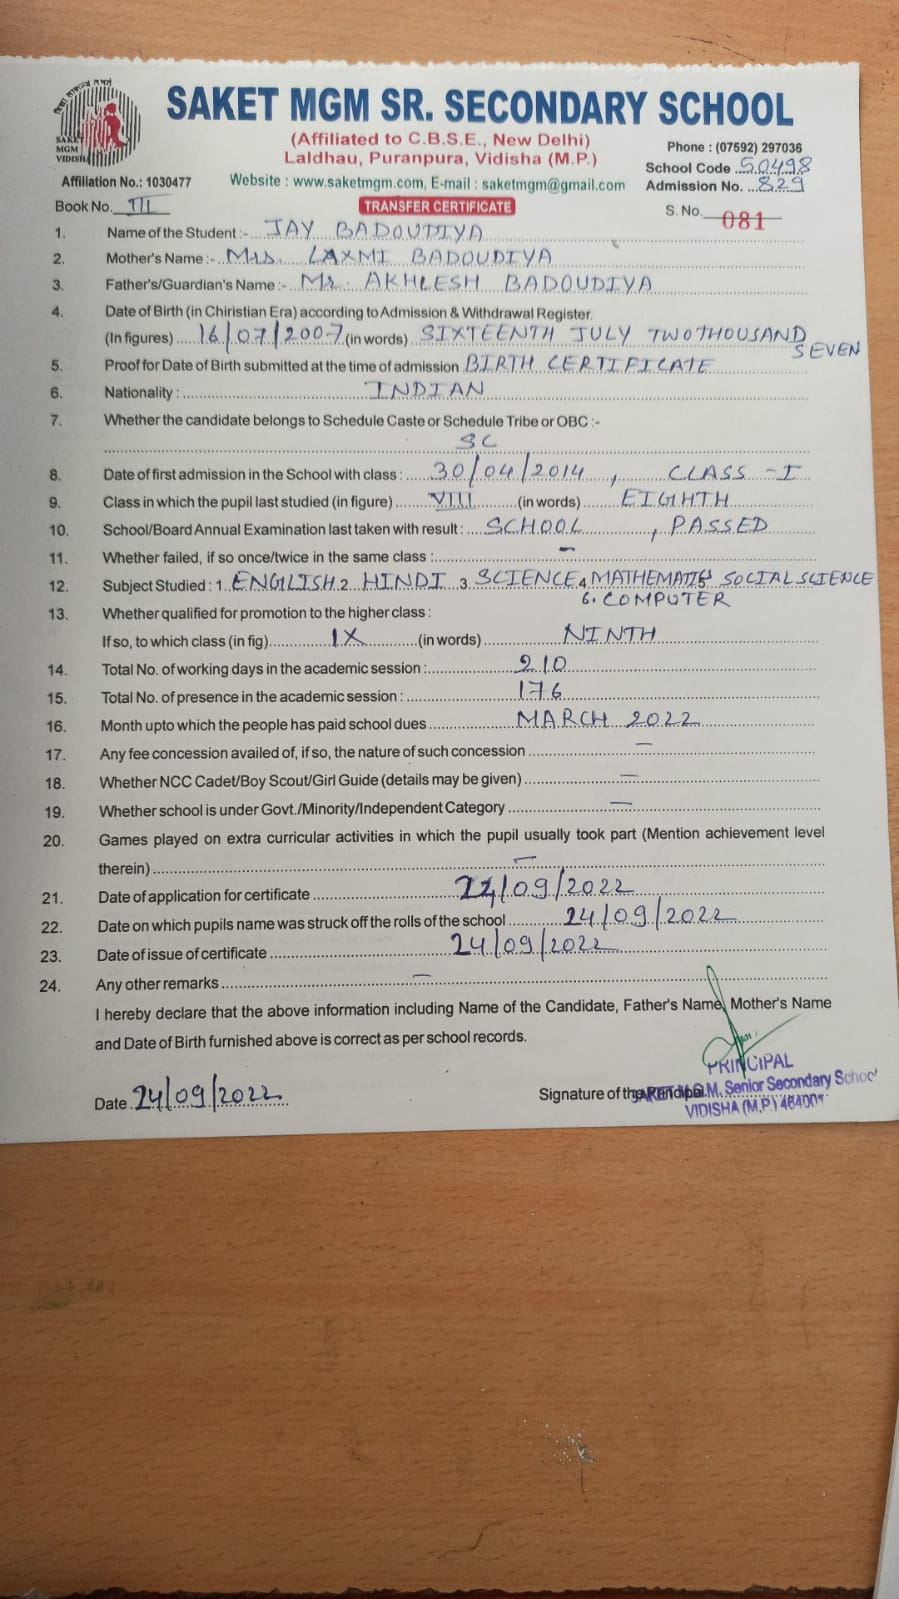 SAKET MGM VIDISHA
SAKET MGM SR. SECONDARY SCHOOL
(Affiliated to C.B.S.E., New Delhi)
Laldhau, Puranpura, Vidisha (M.P.)
Phone : (07592) 297036
School Code 50498
Affiliation No.: 1030477
Website : www.saketmgm.com, E-mail : saketmgm@gmail.com
Admission No. 829
Book No. III
TRANSFER CERTIFICATE
S. No. 081
1. Name of the Student :- JAY BADOUDIYA
2. Mother's Name :- Mrs. LAXMI BADOUDIYA
3. Father's/Guardian's Name :- Mr. AKHLESH BADOUDIYA
4. Date of Birth (in Chiristian Era) according to Admission & Withdrawal Register.
(In figures) 16/07/2007 (in words) SIXTEENTH JULY TWO THOUSAND
SEVEN
5. Proof for Date of Birth submitted at the time of admission BIRTH CERTIFICATE
6. Nationality : INDIAN
7. Whether the candidate belongs to Schedule Caste or Schedule Tribe or OBC :-
SC
8. Date of first admission in the School with class : 30/04/2014, CLASS - I
9. Class in which the pupil last studied (in figure) VIII (in words) EIGHTH
10. School/Board Annual Examination last taken with result : SCHOOL, PASSED
11. Whether failed, if so once/twice in the same class : -
12. Subject Studied : 1. ENGLISH 2. HINDI 3. SCIENCE 4. MATHEMATIS 5. SOCIAL SCIENCE
6. COMPUTER
13. Whether qualified for promotion to the higher class :
If so, to which class (in fig) IX (in words) NINTH
14. Total No. of working days in the academic session : 210
15. Total No. of presence in the academic session : 176
16. Month upto which the people has paid school dues MARCH 2022
17. Any fee concession availed of, if so, the nature of such concession —
18. Whether NCC Cadet/Boy Scout/Girl Guide (details may be given) —
19. Whether school is under Govt./Minority/Independent Category —
20. Games played on extra curricular activities in which the pupil usually took part (Mention achievement level
therein) —
21. Date of application for certificate 24/09/2022
22. Date on which pupils name was struck off the rolls of the school 24/09/2022
23. Date of issue of certificate 24/09/2022
24. Any other remarks —
I hereby declare that the above information including Name of the Candidate, Father's Name, Mother's Name
and Date of Birth furnished above is correct as per school records.
PRINCIPAL
Date 24/09/2022
Signature of the Principal
M. Senior Secondary School
VIDISHA (M.P.)